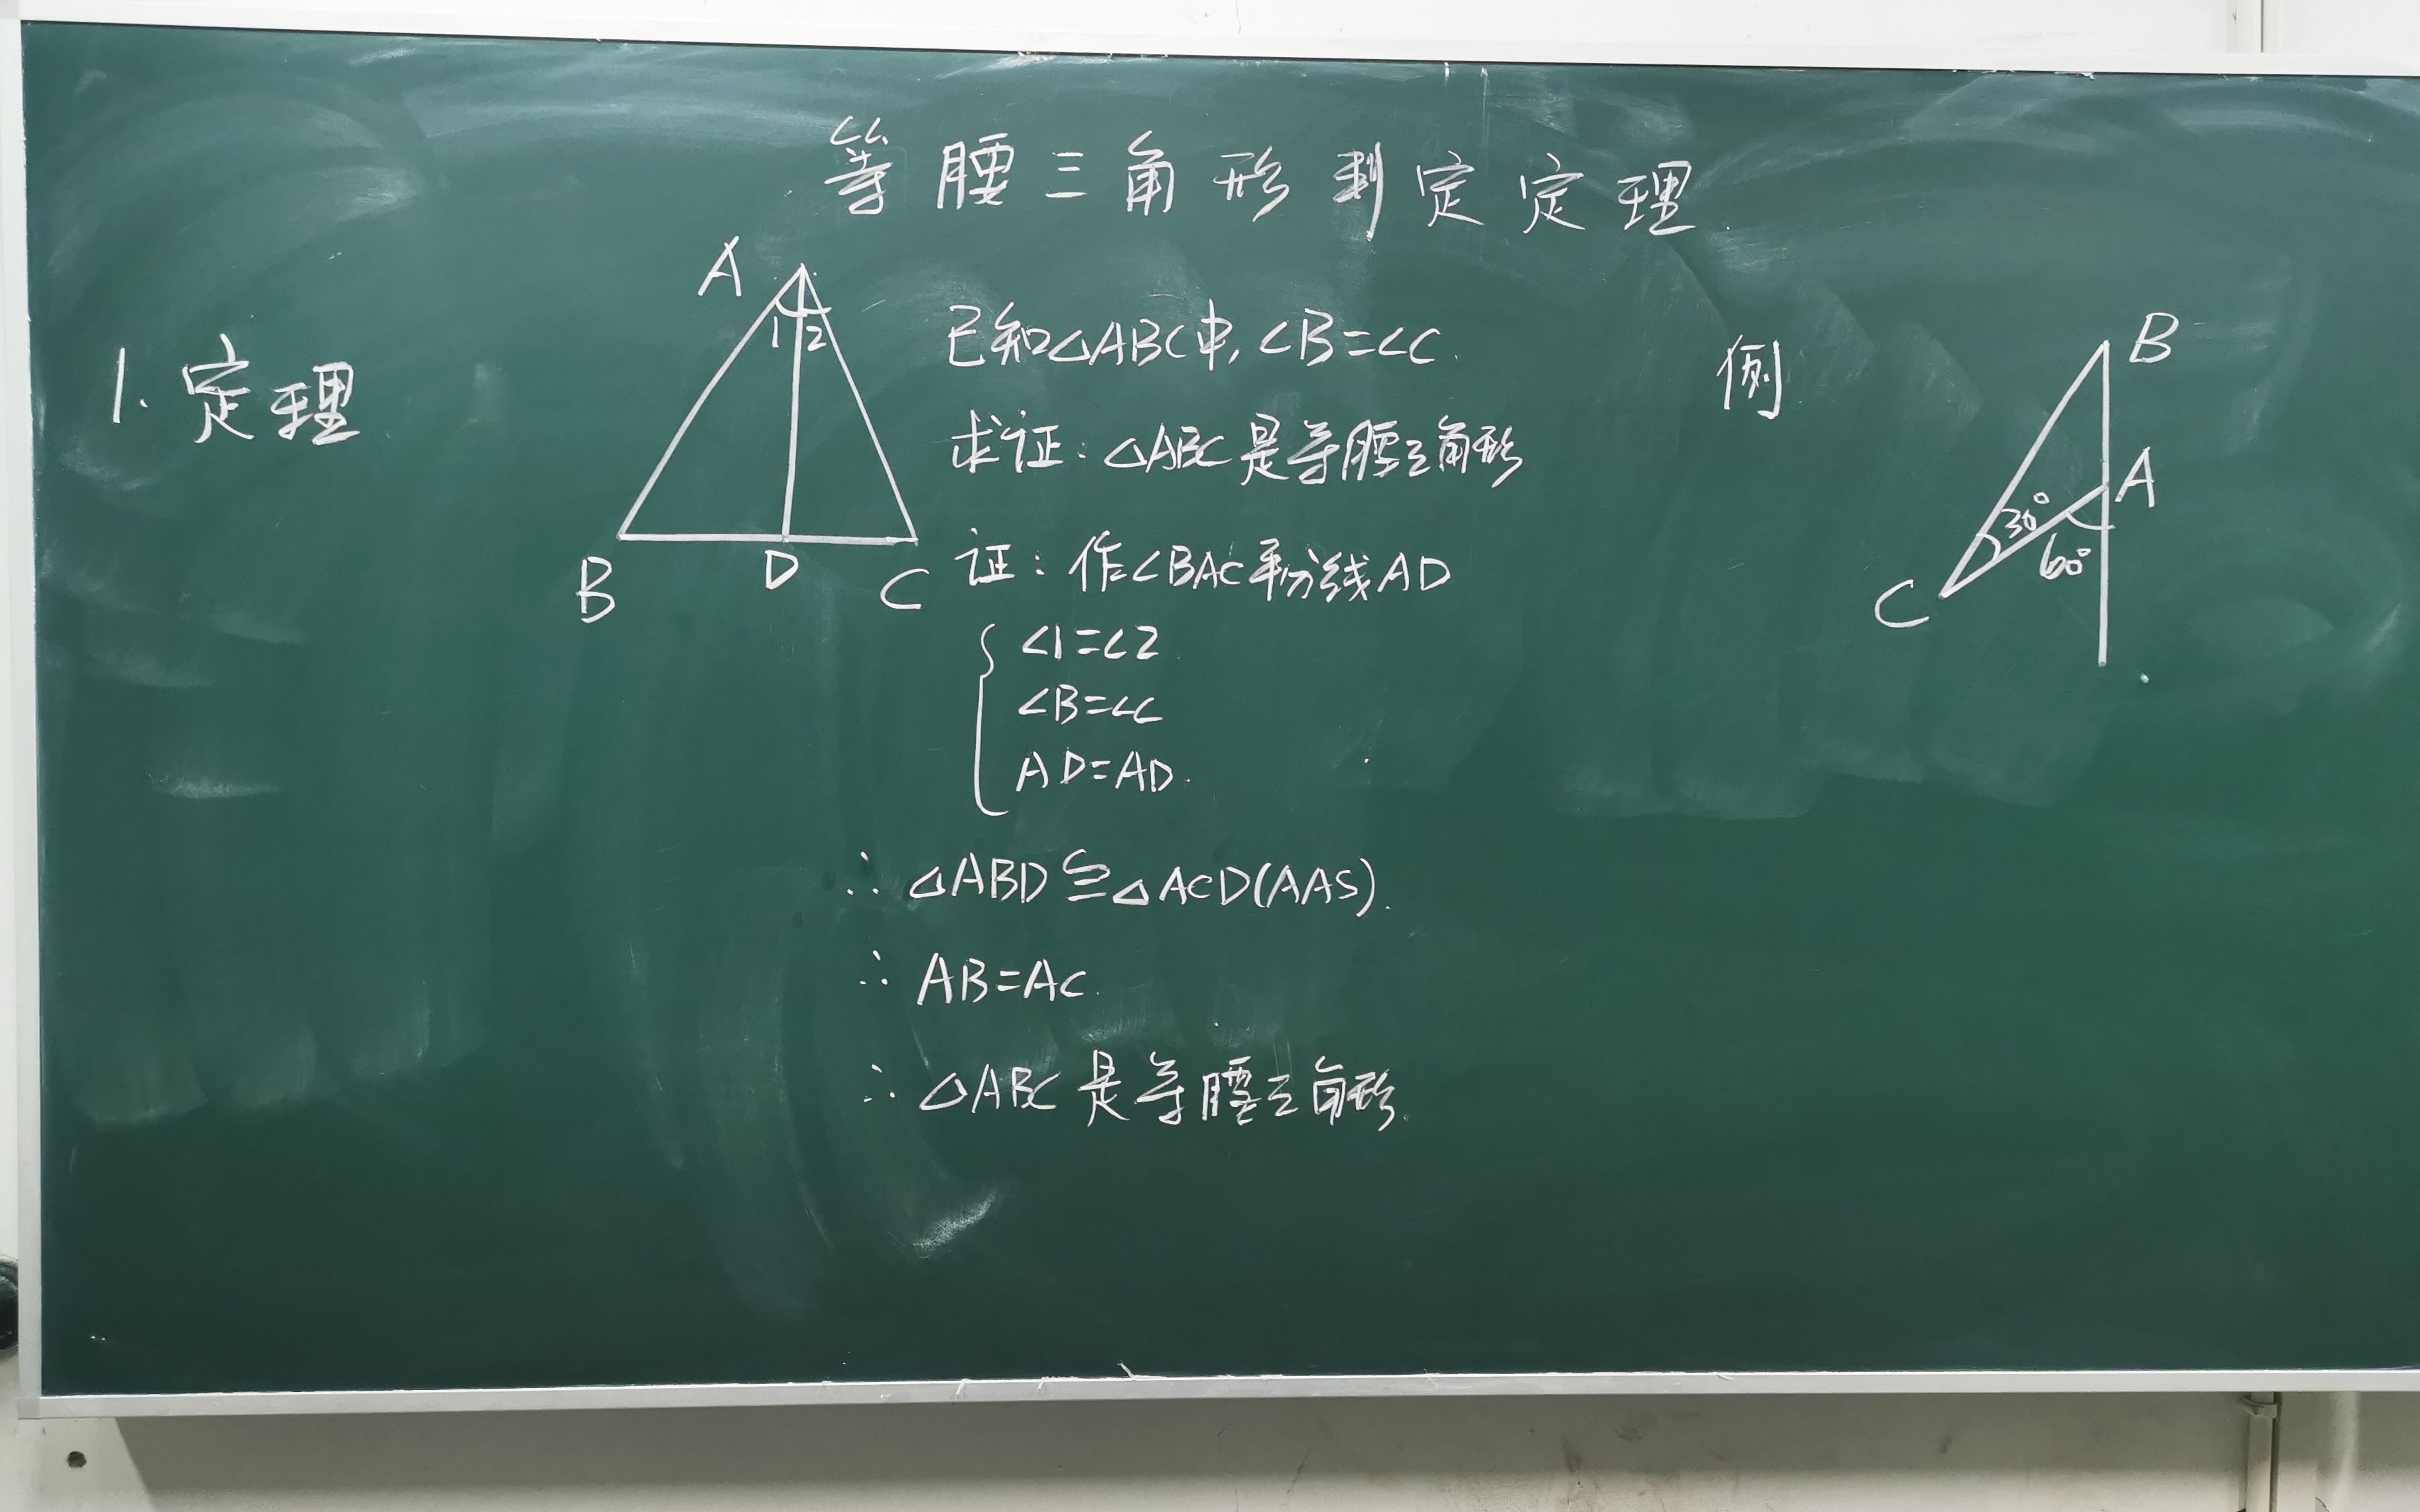 等腰三角形判定定理
1. 定理
A
1 2
B D C
已知△ABC中,∠B=∠C.
求证:△ABC是等腰三角形
证:作∠BAC平分线AD
∠1=∠2
∠B=∠C
AD=AD.
∴ △ABD≌△ACD(AAS).
∴ AB=AC.
∴ △ABC是等腰三角形.
例
B
A
30°
60°
C